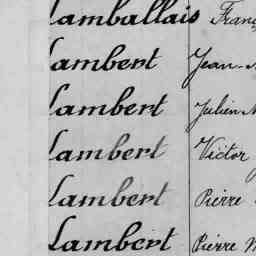 Lamballais Franç
Lambert Jean-
Lambert Julien
Lambert Victor
Lambert Pierre
Lambert Pierre